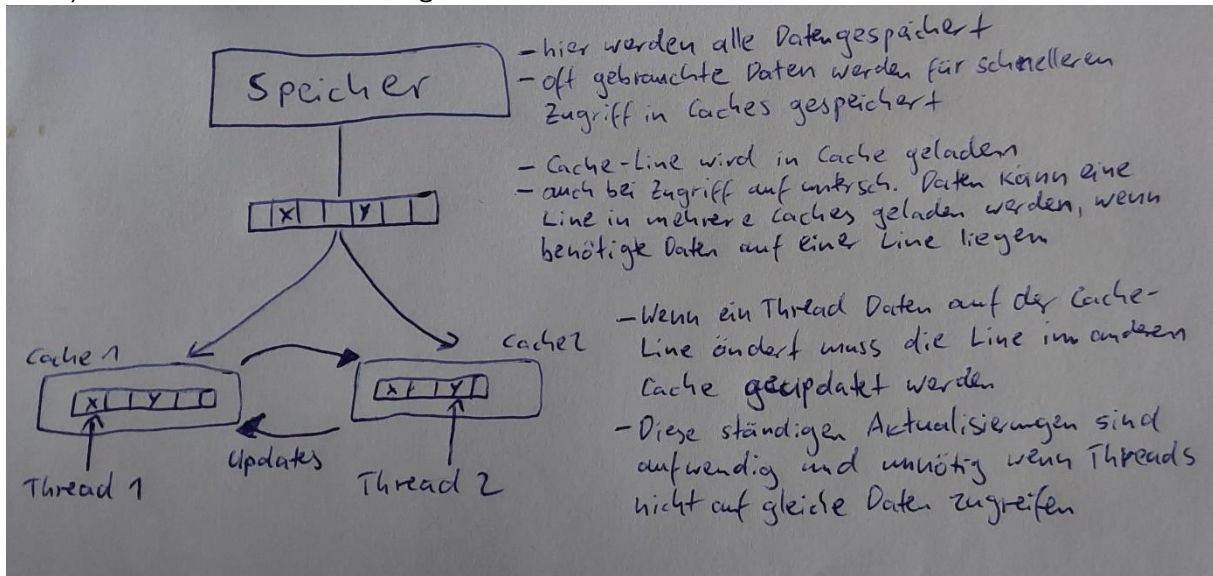 Speicher
- hier werden alle Daten gespeichert
- oft gebrauchte Daten werden für schnelleren
Zugriff in Caches gespeichert
- Cache-Line wird in Cache geladen
- auch bei Zugriff auf untersch. Daten kann eine
Line in mehrere Caches geladen werden, wenn
benötigte Daten auf einer Line liegen
X Y
- Wenn ein Thread Daten auf der Cache-
Line ändert muss die Line im anderen
Cache geupdatet werden
- Diese ständigen Aktualisierungen sind
aufwendig und unnötig wenn Threads
nicht auf gleiche Daten zugreifen
Cache 1
X Y
Thread 1
Updates
Cache 2
X Y
Thread 2